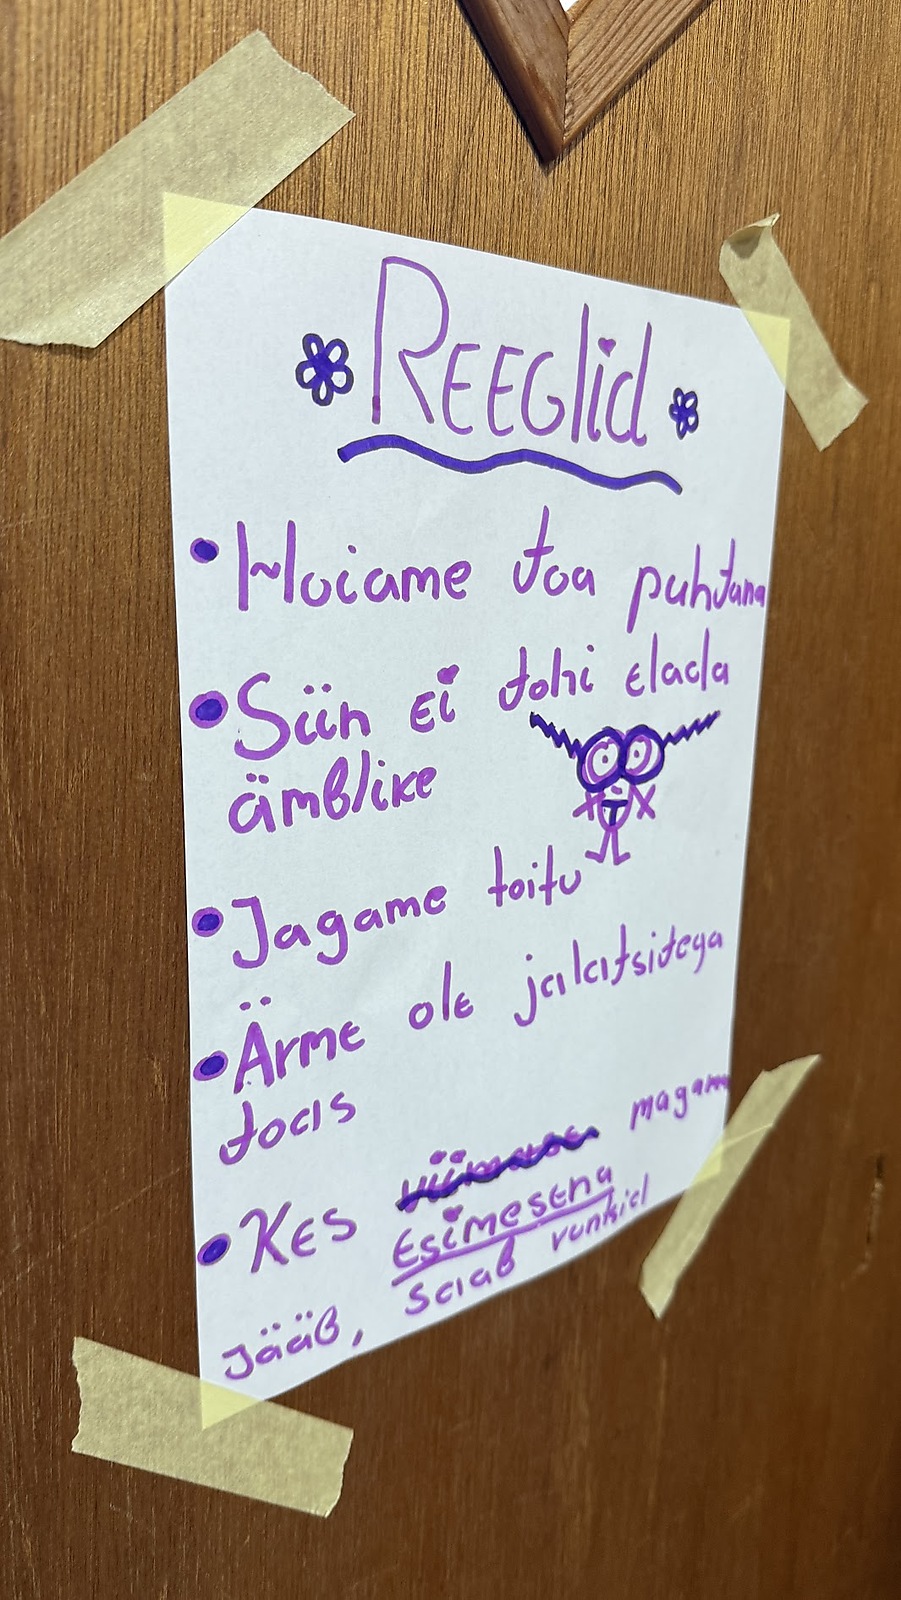 REEGlid
Hoiame toa puhtana
Siin Ei tohi elada
ämblike
Jagame toitu
Ärme ole jalatsitega
toas
Kes Esimesena magama
jääb, saab vunkid